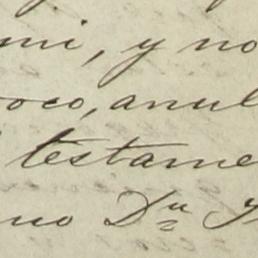 mi, y no
oco, anul
testame
no Dn